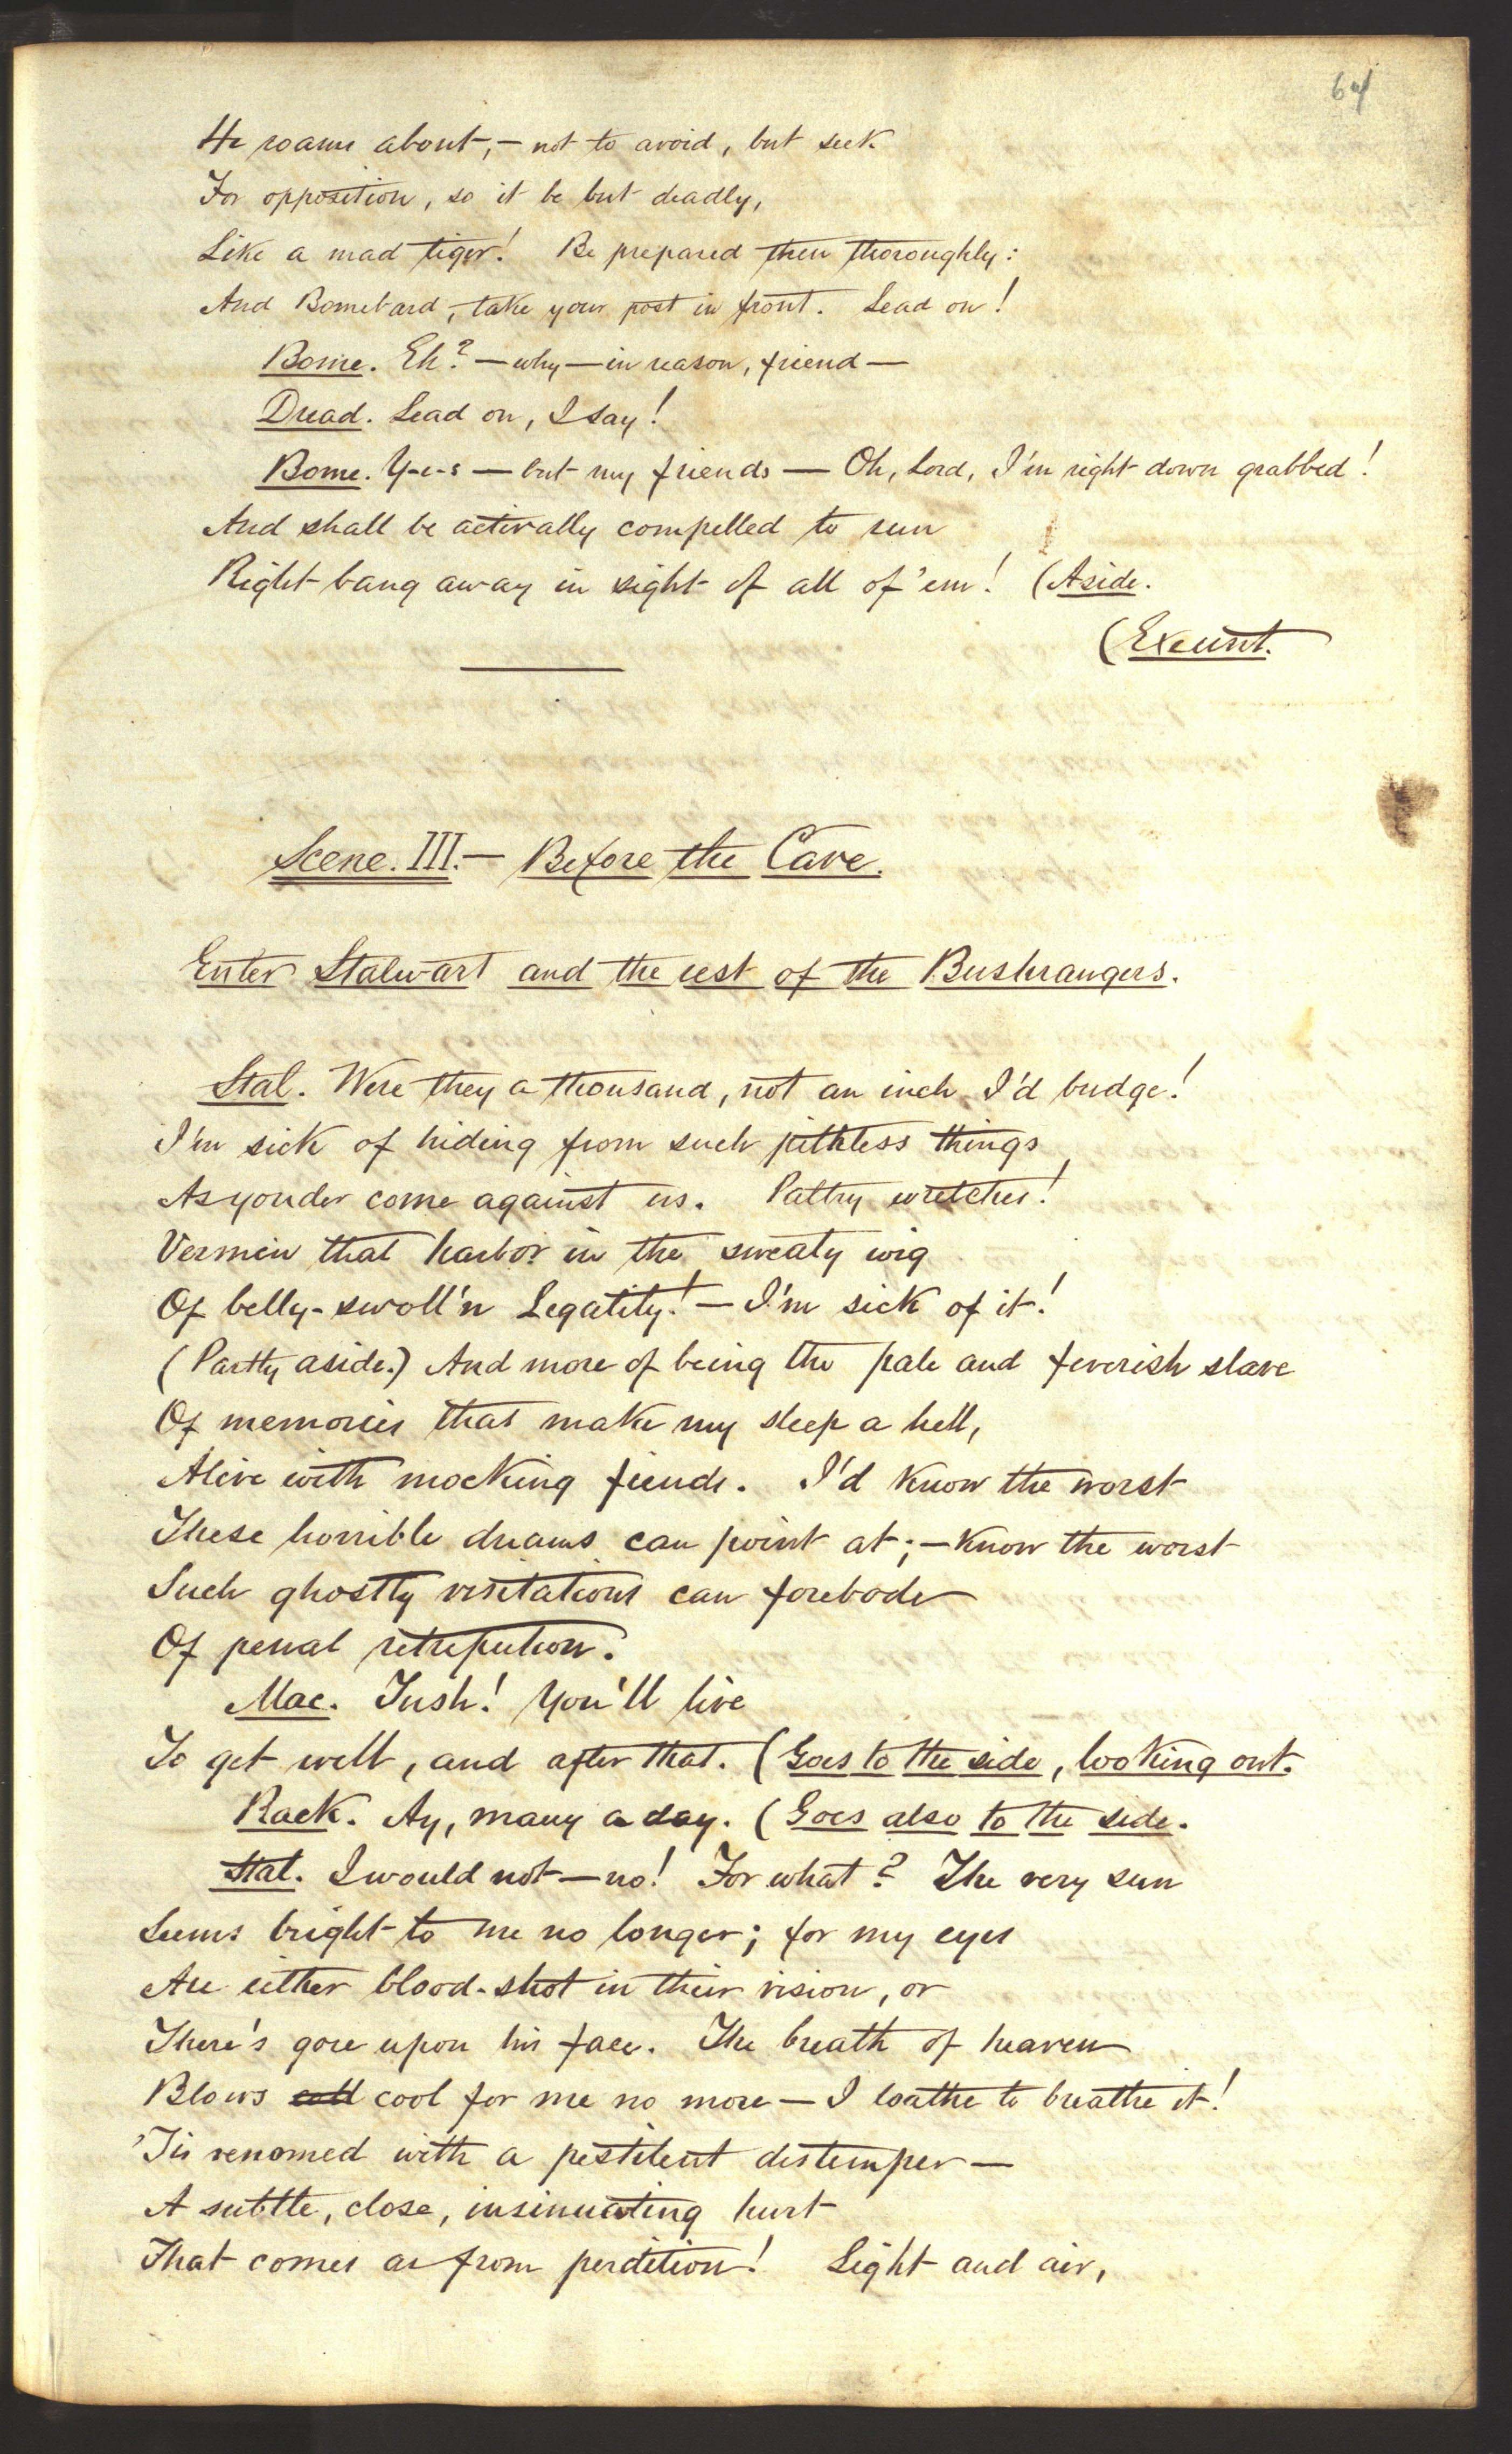 64
He roams about,— not to avoid, but seek
For opposition, so it be but deadly,
Like a mad tiger! Be prepared then thoroughly:
And Bomebard, take your post in front. Lead on!
Bome. Eh?—why—in reason, friend—
Dread. Lead on, I say!
Bome. Y-e-s — but my friends — Oh, Lord, I'm right down grabbed!
And shall be activally compelled to run
Right bang away in sight of all of 'em! (Aside.
(Exeunt.
Scene. III.— Before the Cave.
Enter Stalwart and the rest of the Bushrangers.
Stal. Were they a thousand, not an inch I'd budge!
I'm sick of hiding from such pithless things
As yonder come against us. Paltry wretches!
Vermin that harbor in the sweaty wig
Of belly-swoll'n Legality!—I'm sick of it!
(Partly aside.) And more of being the pale and feverish slave
Of memories that make my sleep a hell,
Alive with mocking fiends. I'd know the worst
These horrible dreams can point at;—know the worst
Such ghostly visitations can forebode
Of penal retribution.
Mac. Tush! You'll live
To get well, and after that. (Goes to the side, looking out.
Rack. Ay, many a day. (Goes also to the side.
Stal. I would not—no! For what? The very sun
Seems bright to me no longer; for my eyes
Are either blood-shot in their vision, or
There's gore upon his face. The breath of heaven
Blows cold cool for me no more—I loathe to breathe it!
'Tis venomed with a pestilent distemper—
A subtle, close, insinuating hurt
That comes as from perdition! Light and air,